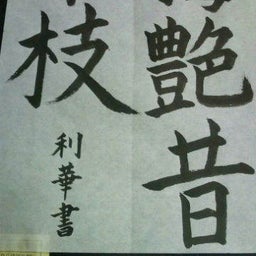 艶昔
枝
利華書